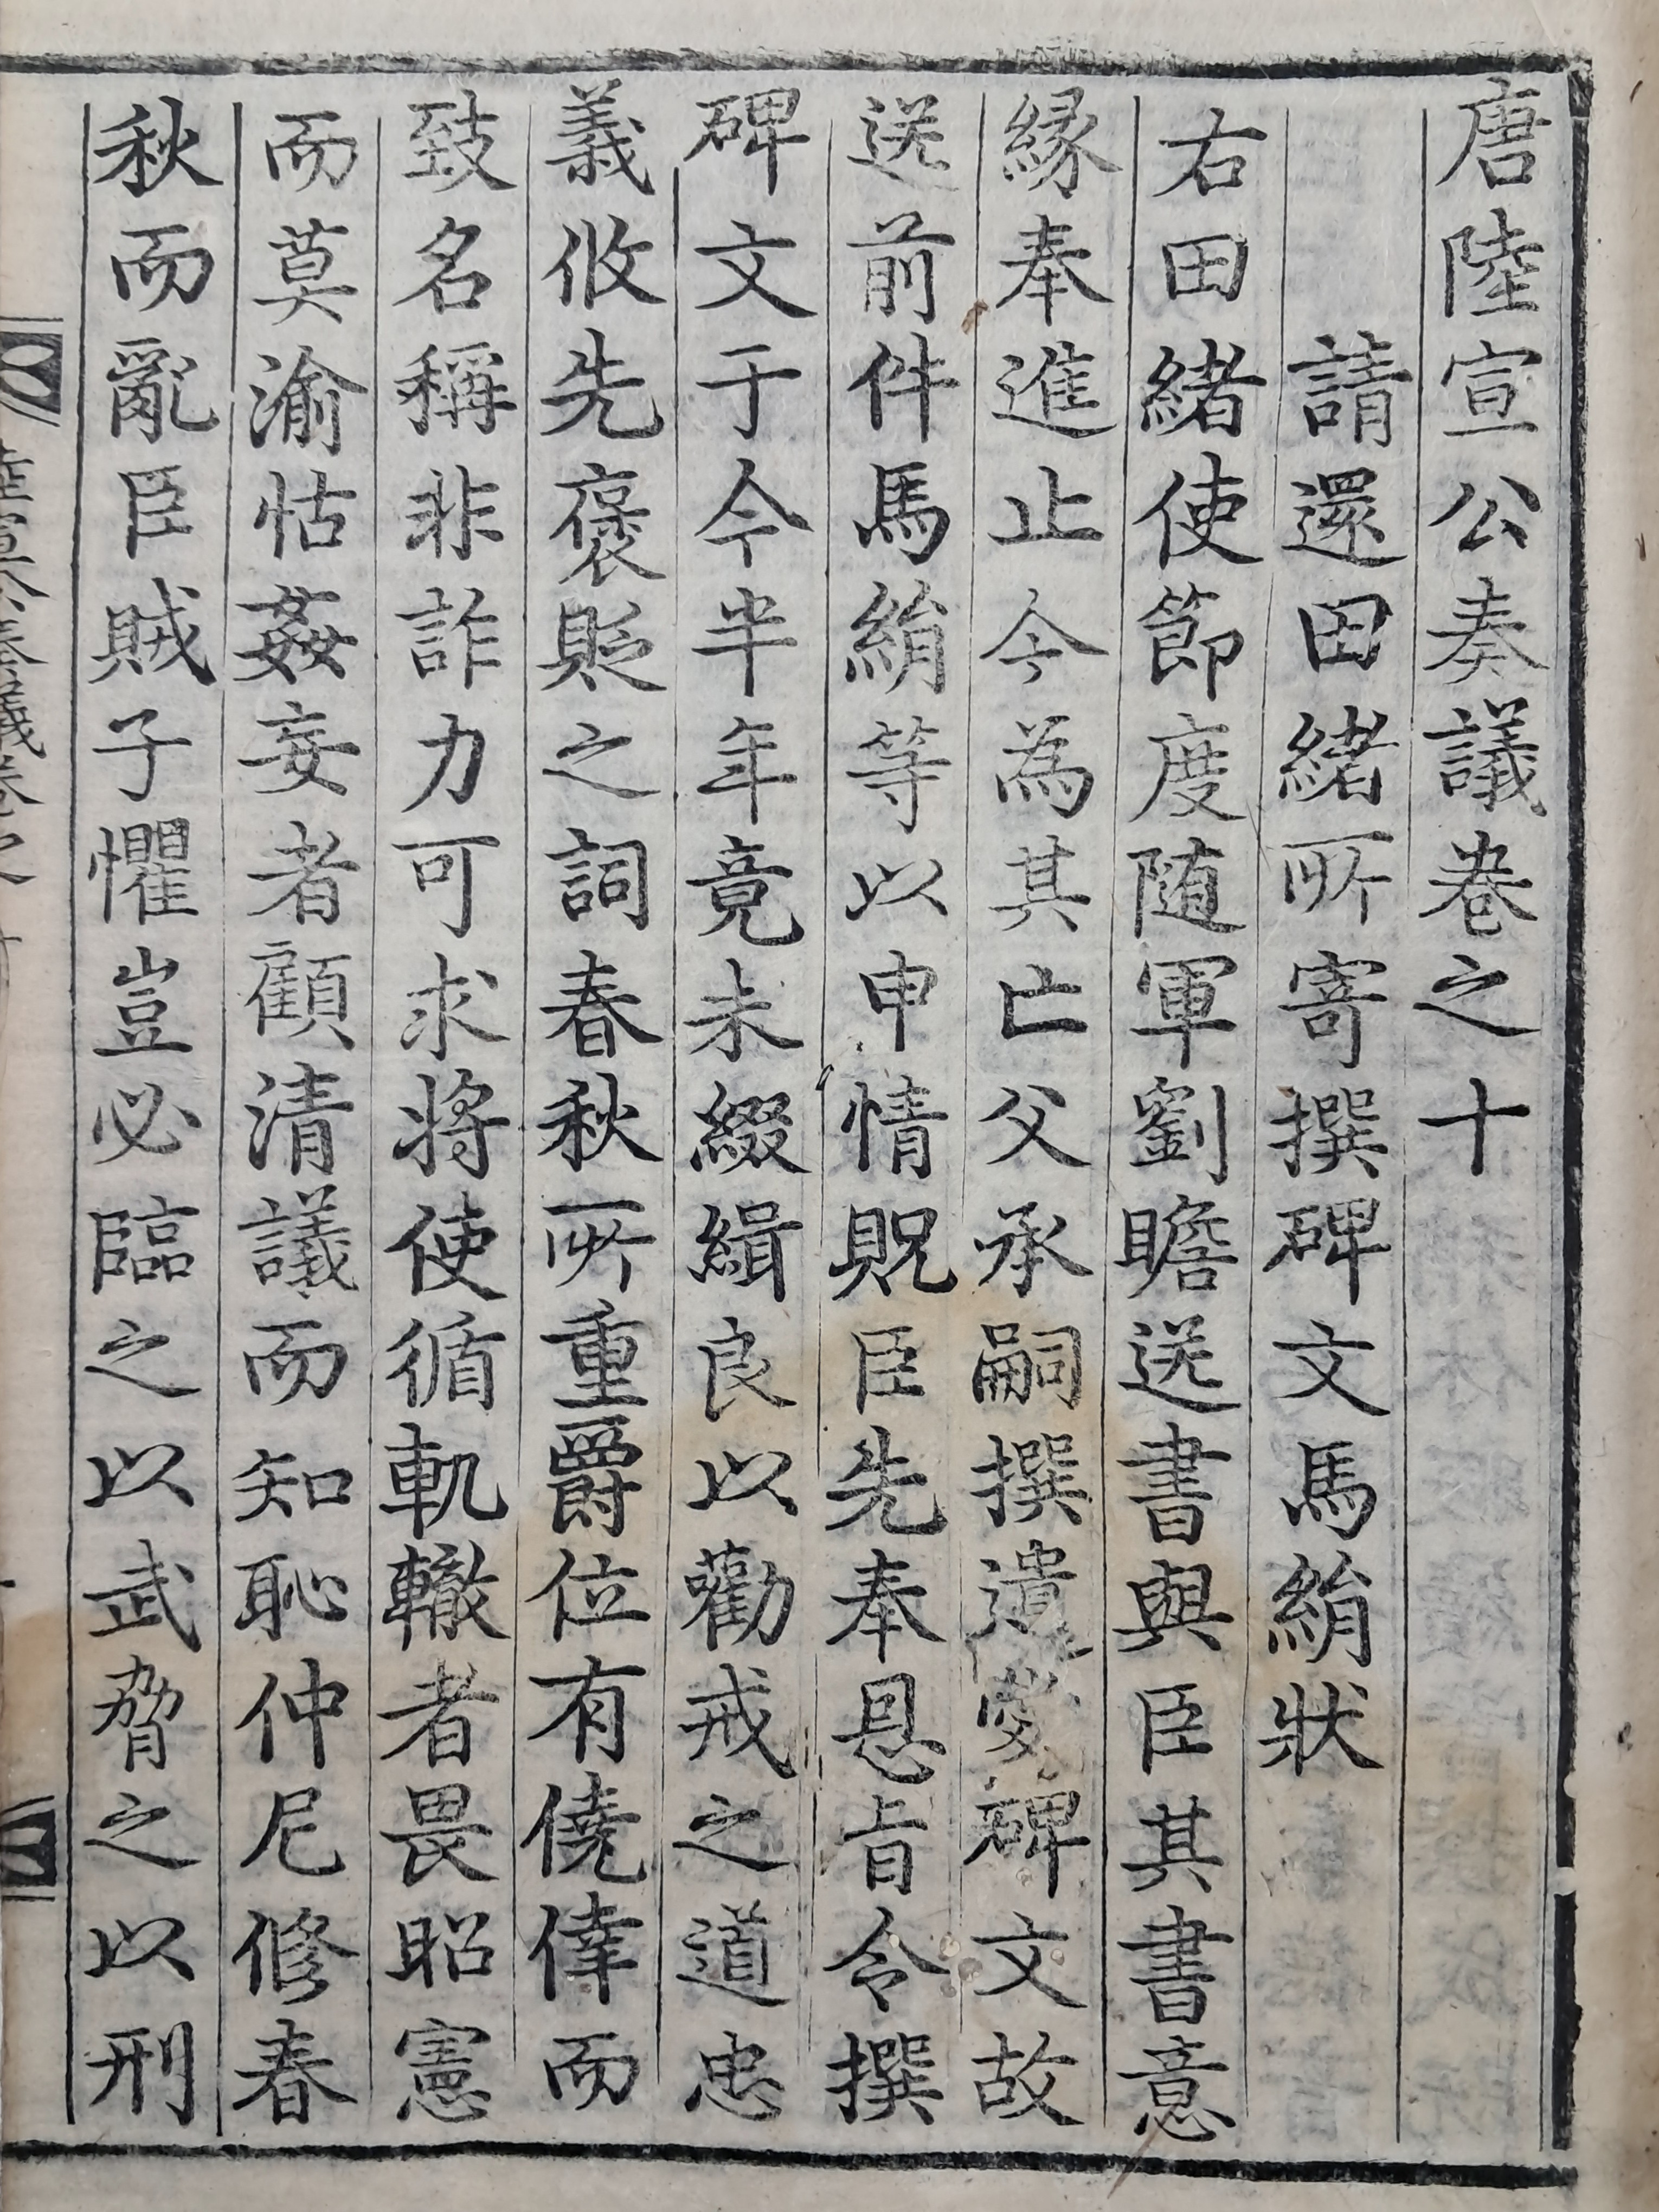 唐陸宣公奏議卷之十
請還田緒所寄撰碑文馬絹狀
右田緒使節度随軍劉瞻送書與臣其書意
緣奉進止今為其亡父承嗣撰遺愛碑文故
送前件馬絹等以申情貺臣先奉恩旨令撰
碑文于今半年竟未綴緝良以勸戒之道忠
義攸先褒貶之詞春秋所重爵位有僥倖而
致名稱非詐力可求將使循軌轍者畏昭憲
而莫渝怙姦妄者顧清議而知恥仲尼修春
秋而亂臣賊子懼豈必臨之以武脅之以刑
陸宣公奏議卷之十